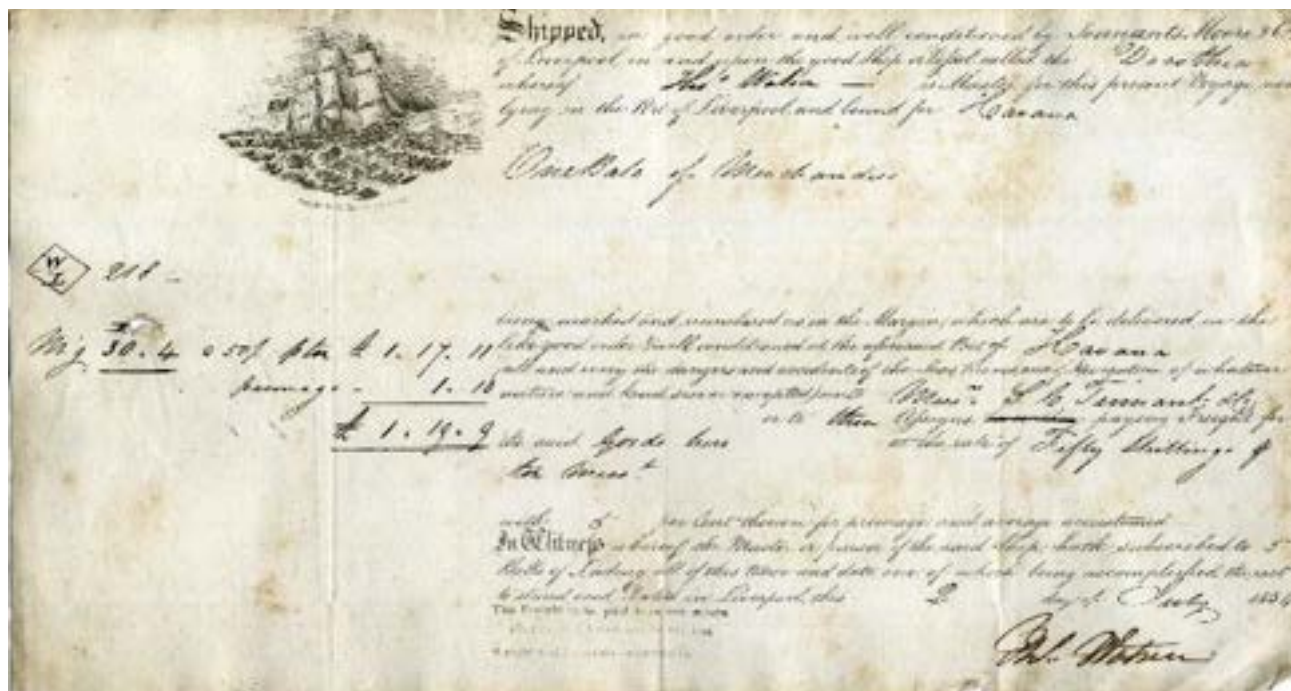 Shipped, in good order and well conditioned by Tennants Moore & Co
of Liverpool in and upon the good Ship or Vessel called the Dorothea
whereof Thos Watson is Master, for this present Voyage, now
lying in the Port of Liverpool and bound for Havana
One Bale of Merchandise
W 218
being marked and numbered as in the Margin, which are to be delivered in the
Msg 30.4 @ 50/ p ton £ 1.17.11
like good order and well conditioned at the aforesaid Port of Havana
primage 1.10
all and every the dangers and accidents of the Seas and of Navigation of whatever
nature and kind soever excepted unto Messrs Tennant
£ 1.19.9
or to their Assigns paying Freight for
the said Goods here at the rate of Fifty Shillings p
ton Meast
with 5 per Cent thereon for primage and average accustomed
In Witness whereof the Master or purser of the said Ship, hath subscribed to 3
Bills of Lading all of this tenor and date one of which being accomplished, the rest
to stand void. Dated in Liverpool, this 2 day of July 183
Thos Watson